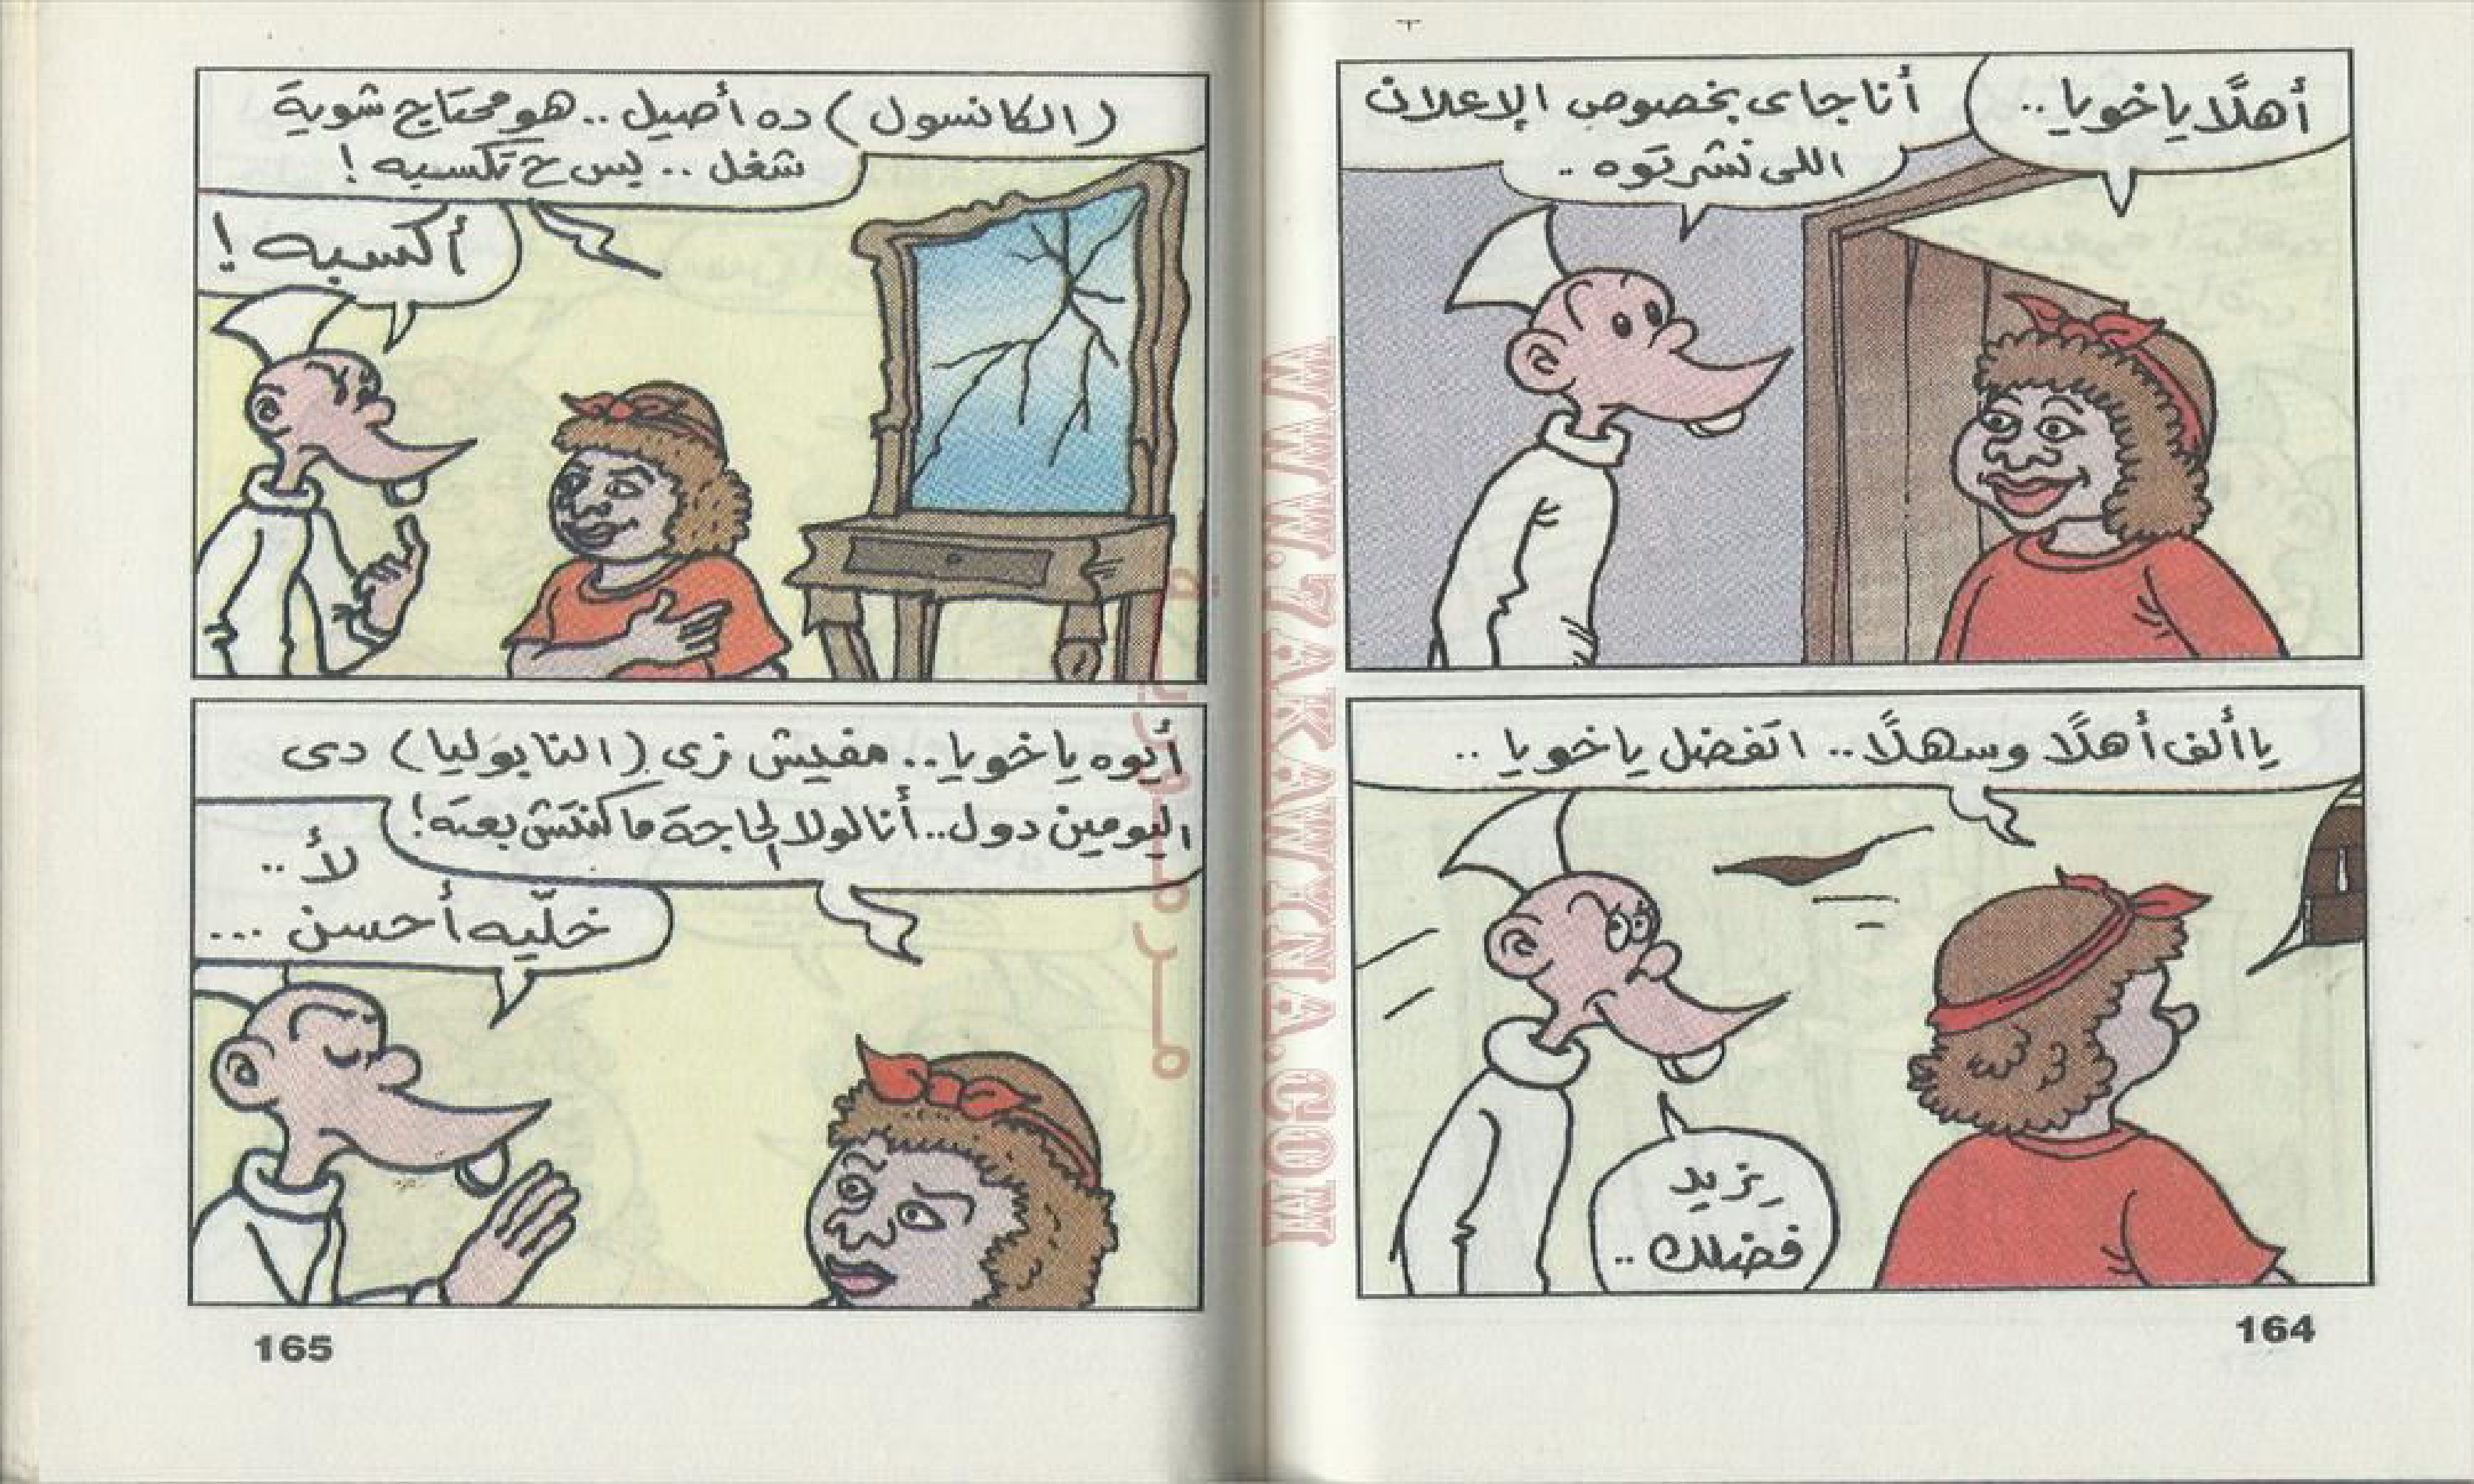 أهلًا ياخويا..
أنا جاى بخصوص الإعلان
اللى نشرتوه..
ياألف أهلًا وسهلًا.. اتفضل ياخويا..
يزيد
فضلك..
164
(الكانسول) ده أصيل.. هو محتاج شوية
شغل.. بس ح تكسبه!
أكسبه!
أيوه ياخويا.. مفيش زى (النابوليا) دى
اليومين دول.. أنا لولا الحاجة ما كنتش بعته!
لأ..
خلّيه أحسن...
165
WWW.7AKAWYNA.COM